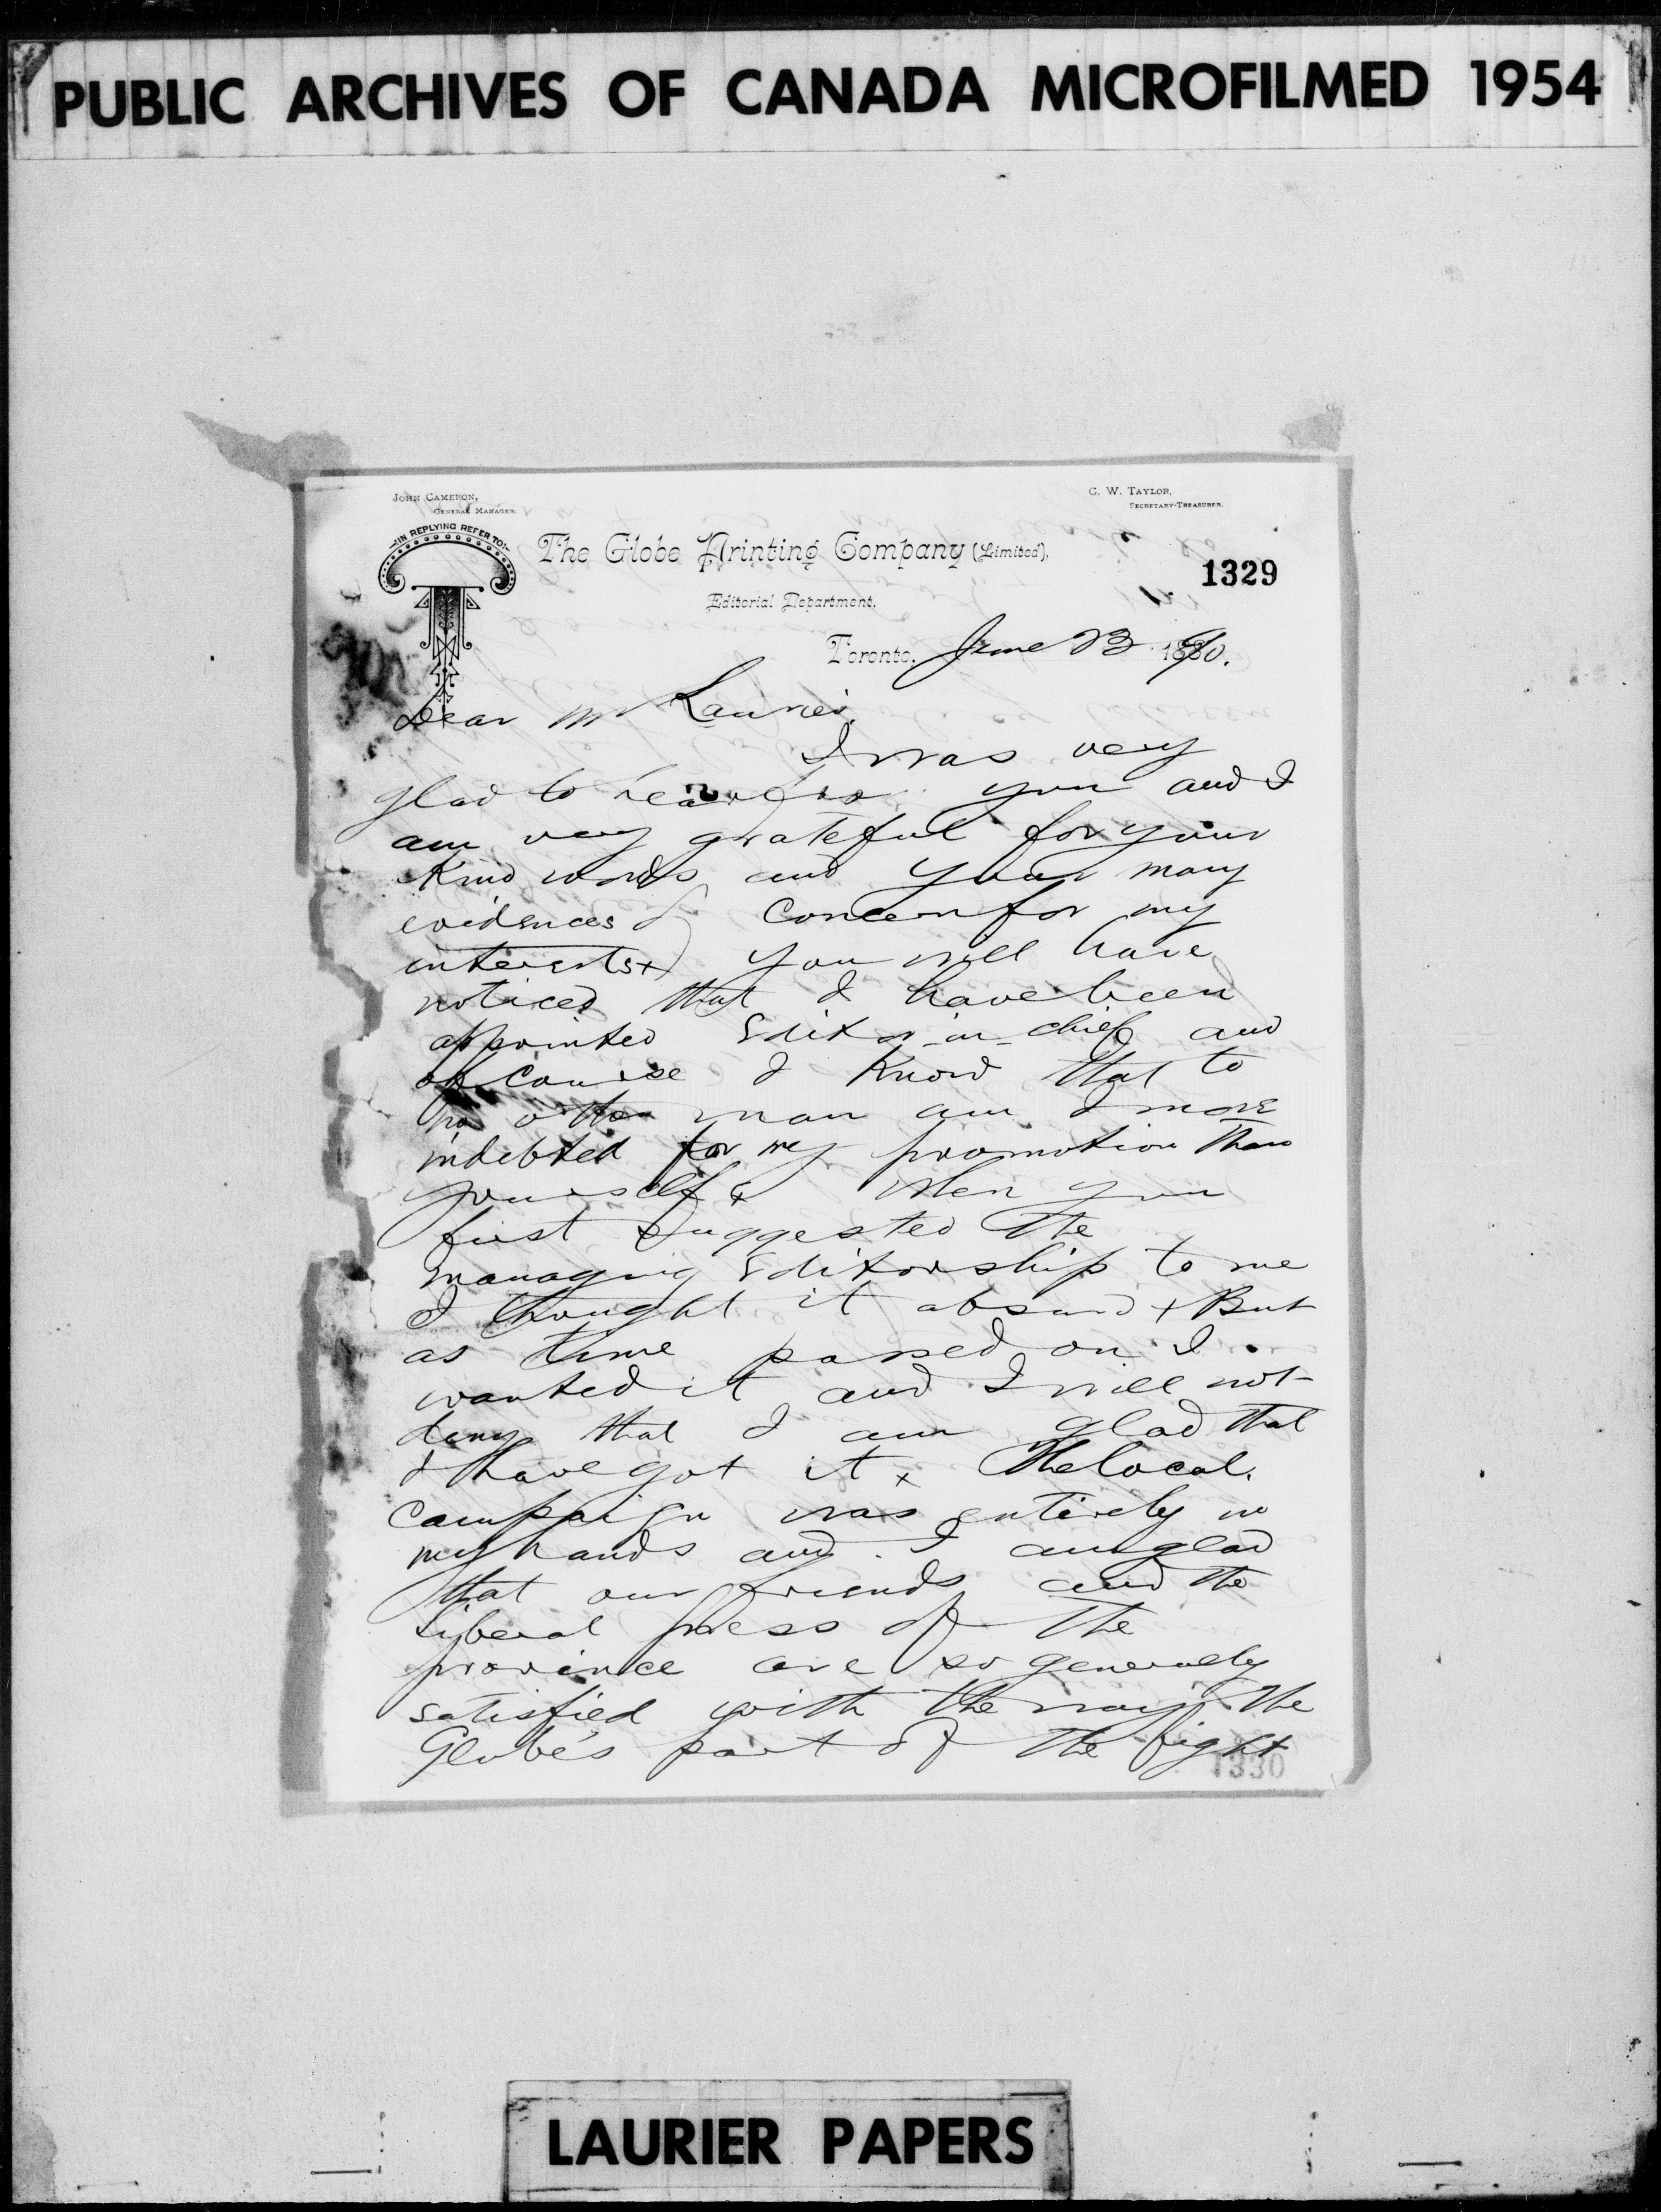 PUBLIC ARCHIVES OF CANADA MICROFILMED 1954
JOHN CAMERON,
GENERAL MANAGER.
C. W. TAYLOR,
SECRETARY-TREASURER.
IN REPLYING REFER TO:
The Globe Printing Company (Limited),
1329
Editorial Department.
Toronto, June 23 1890.
Dear Mr Laurier,
I was very
glad to hear from you and I
am very grateful for your
kind words and your many
evidences of concern for my
interests x You will have
noticed that I have been
appointed Editor-in-chief and
of course I know that to
no other man am I more
indebted for my promotion than
yourself x When you
first suggested the
managing Editorship to me
I thought it absurd x But
as time passed on I
wanted it and I will not
deny that I am glad that
I have got it x The local
campaign was entirely in
my hands and I am glad
that our friends and the
Liberal press of the
province are so generally
satisfied with the way the
Globe's part of the fight
1330
LAURIER PAPERS